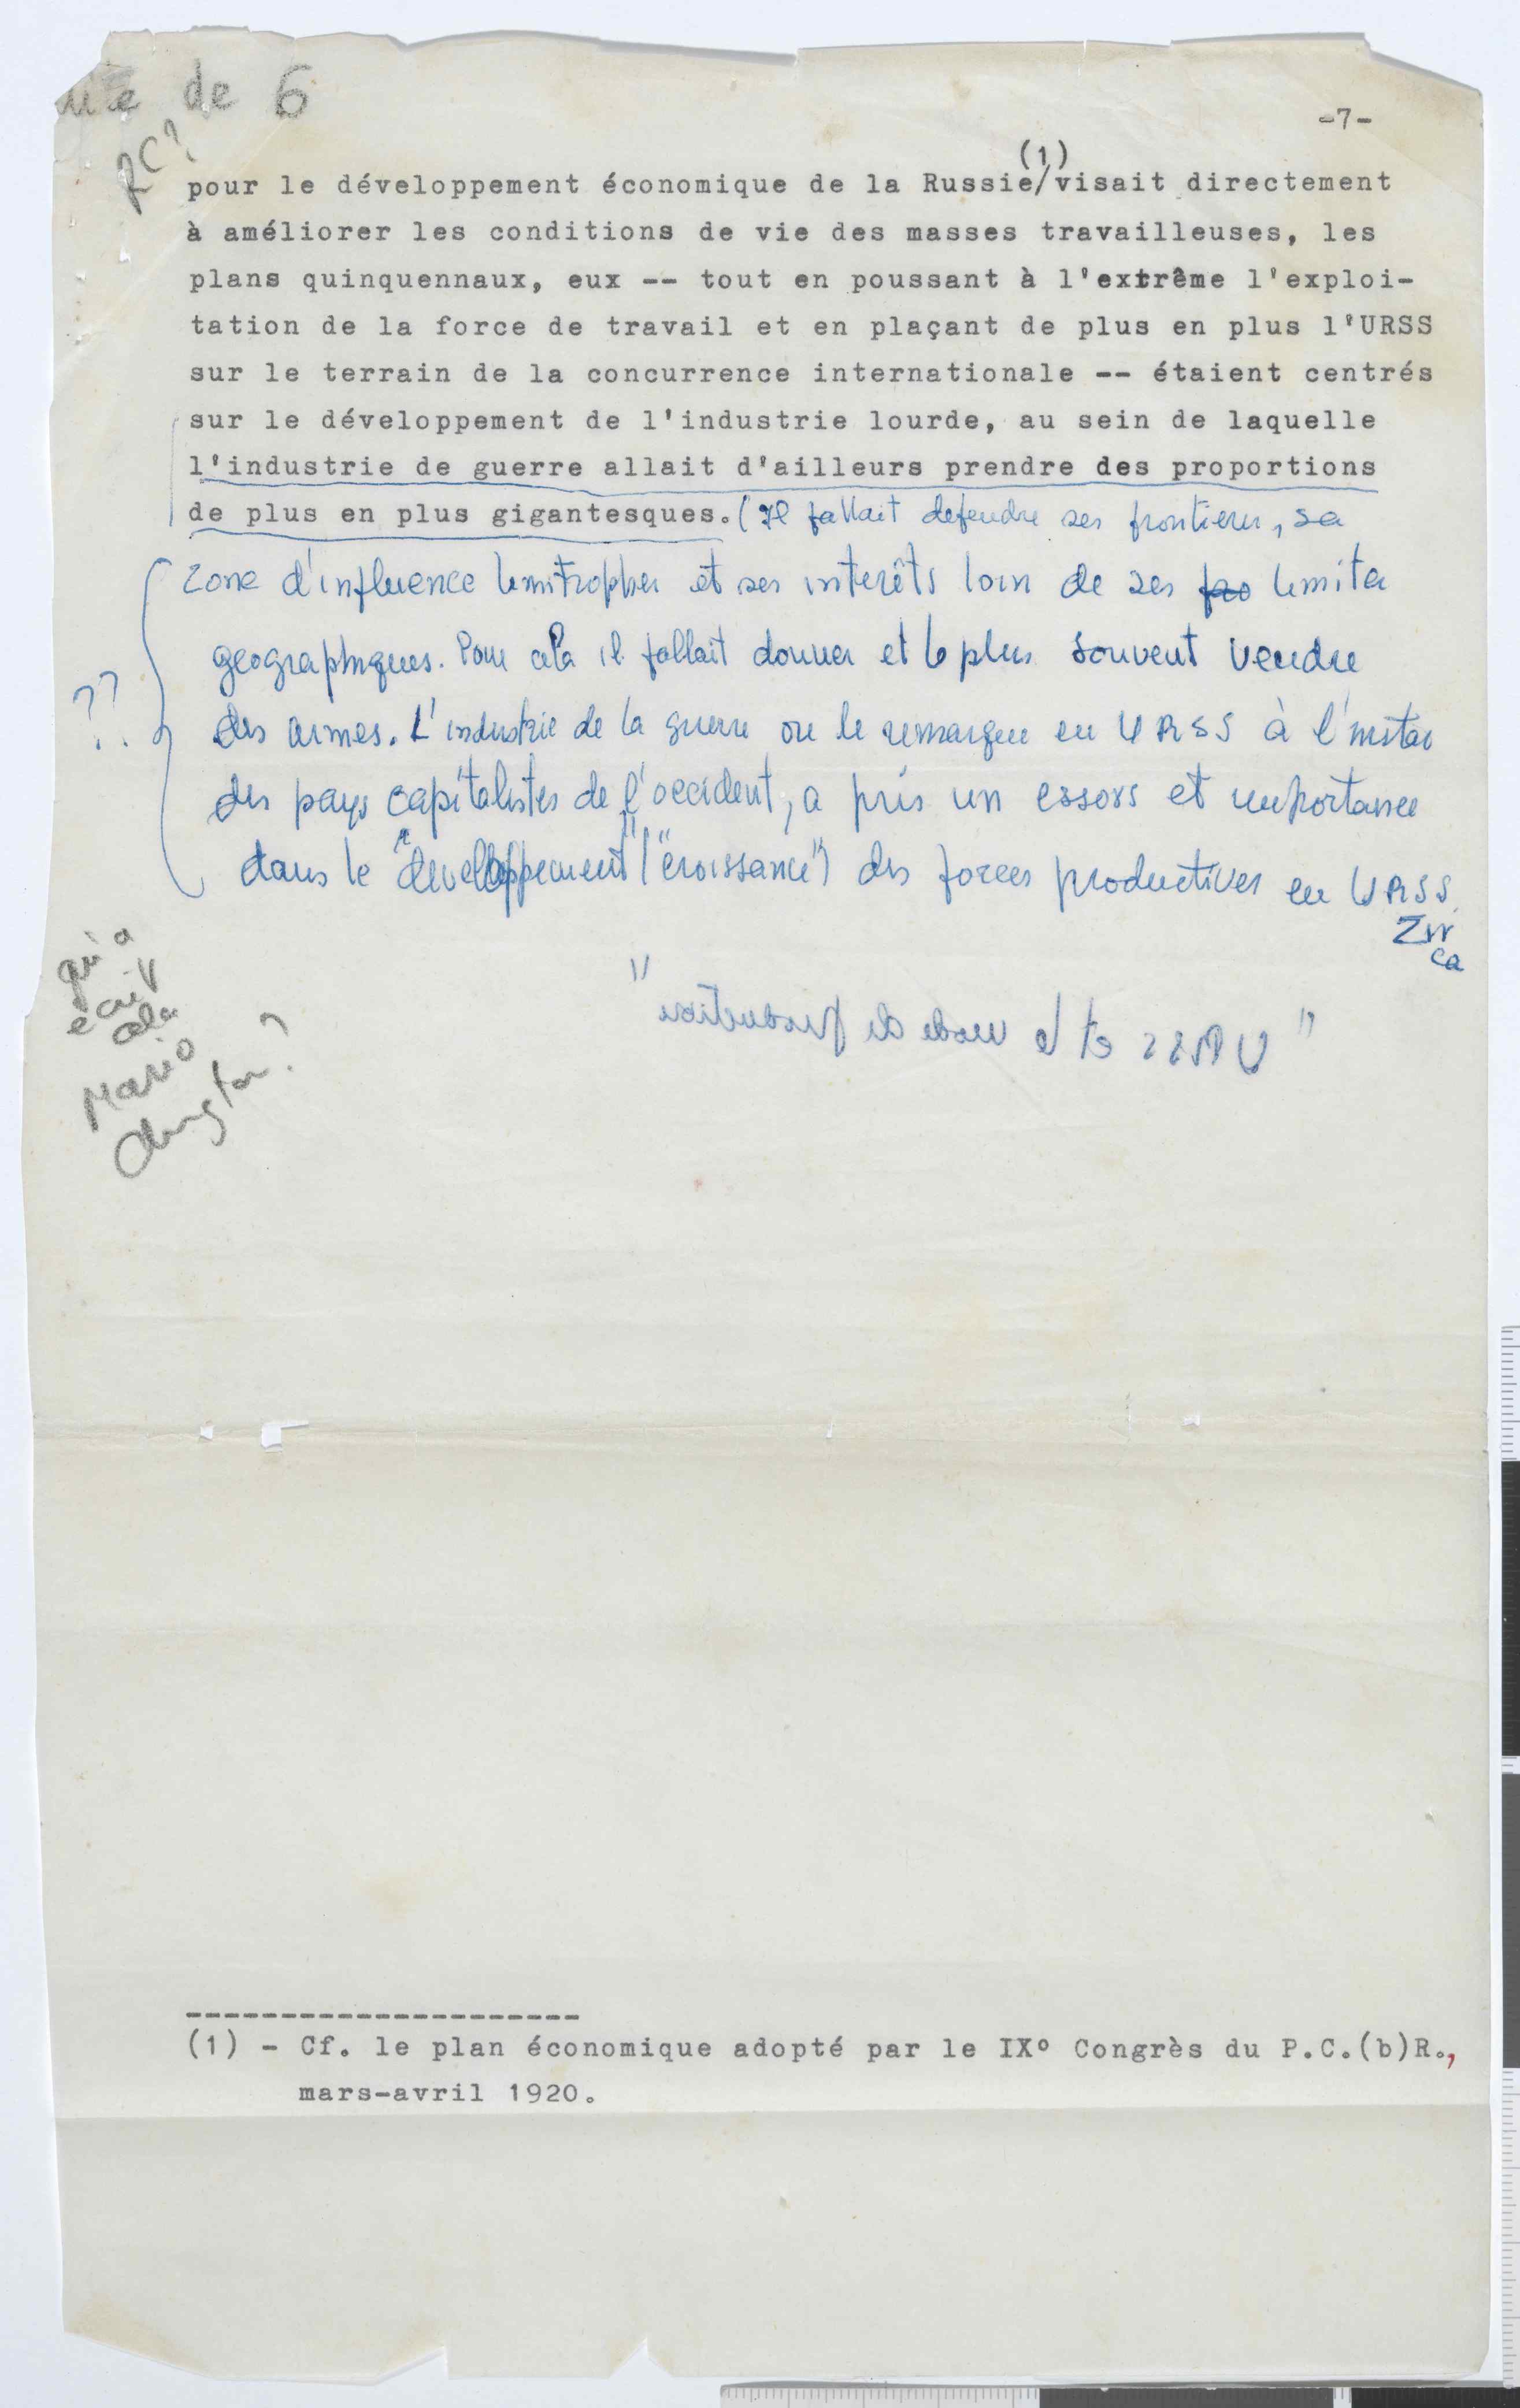 de 6
-7-
RC?
(1)
pour le développement économique de la Russie/visait directement
à améliorer les conditions de vie des masses travailleuses, les
plans quinquennaux, eux -- tout en poussant à l'extrême l'exploi-
tation de la force de travail et en plaçant de plus en plus l'URSS
sur le terrain de la concurrence internationale -- étaient centrés
sur le développement de l'industrie lourde, au sein de laquelle
l'industrie de guerre allait d'ailleurs prendre des proportions
de plus en plus gigantesques. (Il fallait defendre ses frontieres, sa
zone d'influence limitrophes et ses interêts loin de ses limites
geographiques. Pour cela il fallait donner et le plus souvent vendre
des armes. L'industrie de la guerre on le remarque en URSS à l'instar
des pays capitalistes de l'occident, a pris un essors et importance
dans le "developpement" ("croissance") des forces productives en URSS.
??
qui a
écrit
cela
Mario
?
"URSS et le mode de production"
(1) - Cf. le plan économique adopté par le IXº Congrès du P.C.(b)R.,
mars-avril 1920.